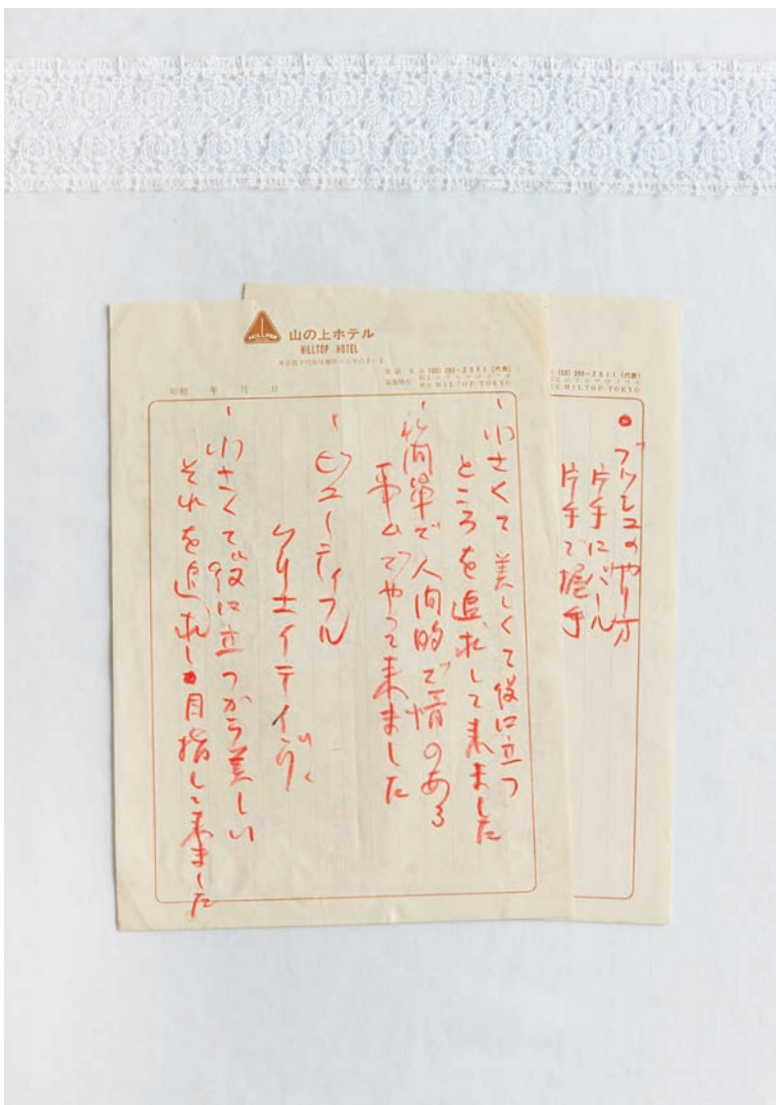 HILLTOP
山の上ホテル
HILLTOP HOTEL
昭和 年 月 日
(03) 293-2311 (代表)
HILLTOP TOKYO
小さくて美しくて役に立つ
ところを追求して来ました
簡単で人間的で情のある
事ムでやって来ました
ビューティフル
クリエイティヴ
小さくて役に立つから美しい
それを追求し目指して来ました
(03) 293-2311 (代表)
HILLTOP TOKYO
のやり方
片手に
片手で握手